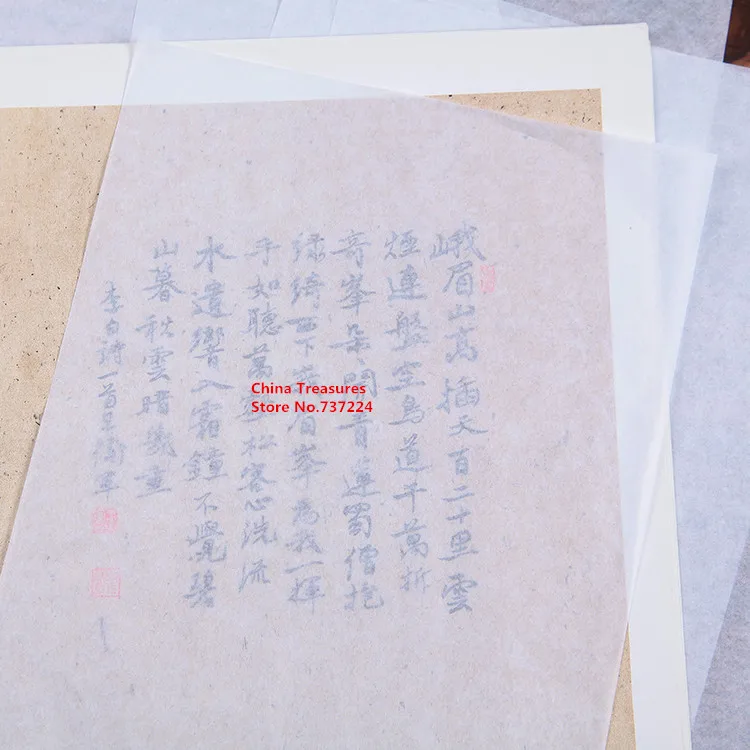 峨眉山高插天百二十里雲
煙連盤空鳥道千萬折
奇峯朵〻開青蓮蜀僧抱
绿綺西下峨眉峯為我一揮
手如聽萬壑松客心洗流
水遺響入霜鐘不覺碧
山暮秋雲暗幾重
李白诗一首
China Treasures
Store No.737224